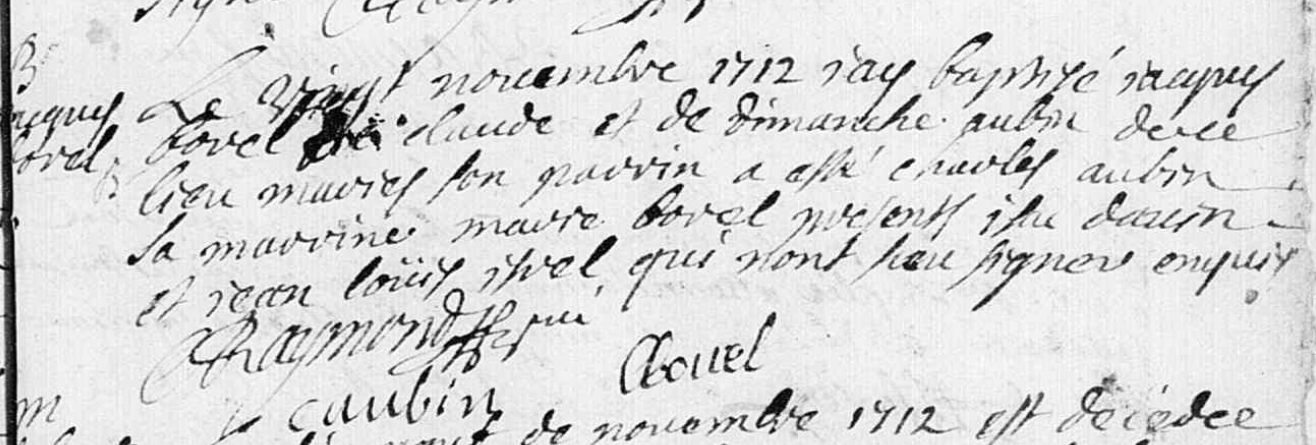 B
Jacques
borel
Le vingt novembre 1712 jay baptisé jacques
borel de claude et de dimanche aubin de ce
lieu mariés son parrin a esté charles aubin
sa marrine marie borel presents
et jean loüis qui nont sceu signer enquis
Raymond
Cborel
caubin
m
de novembre 1712 est decedee